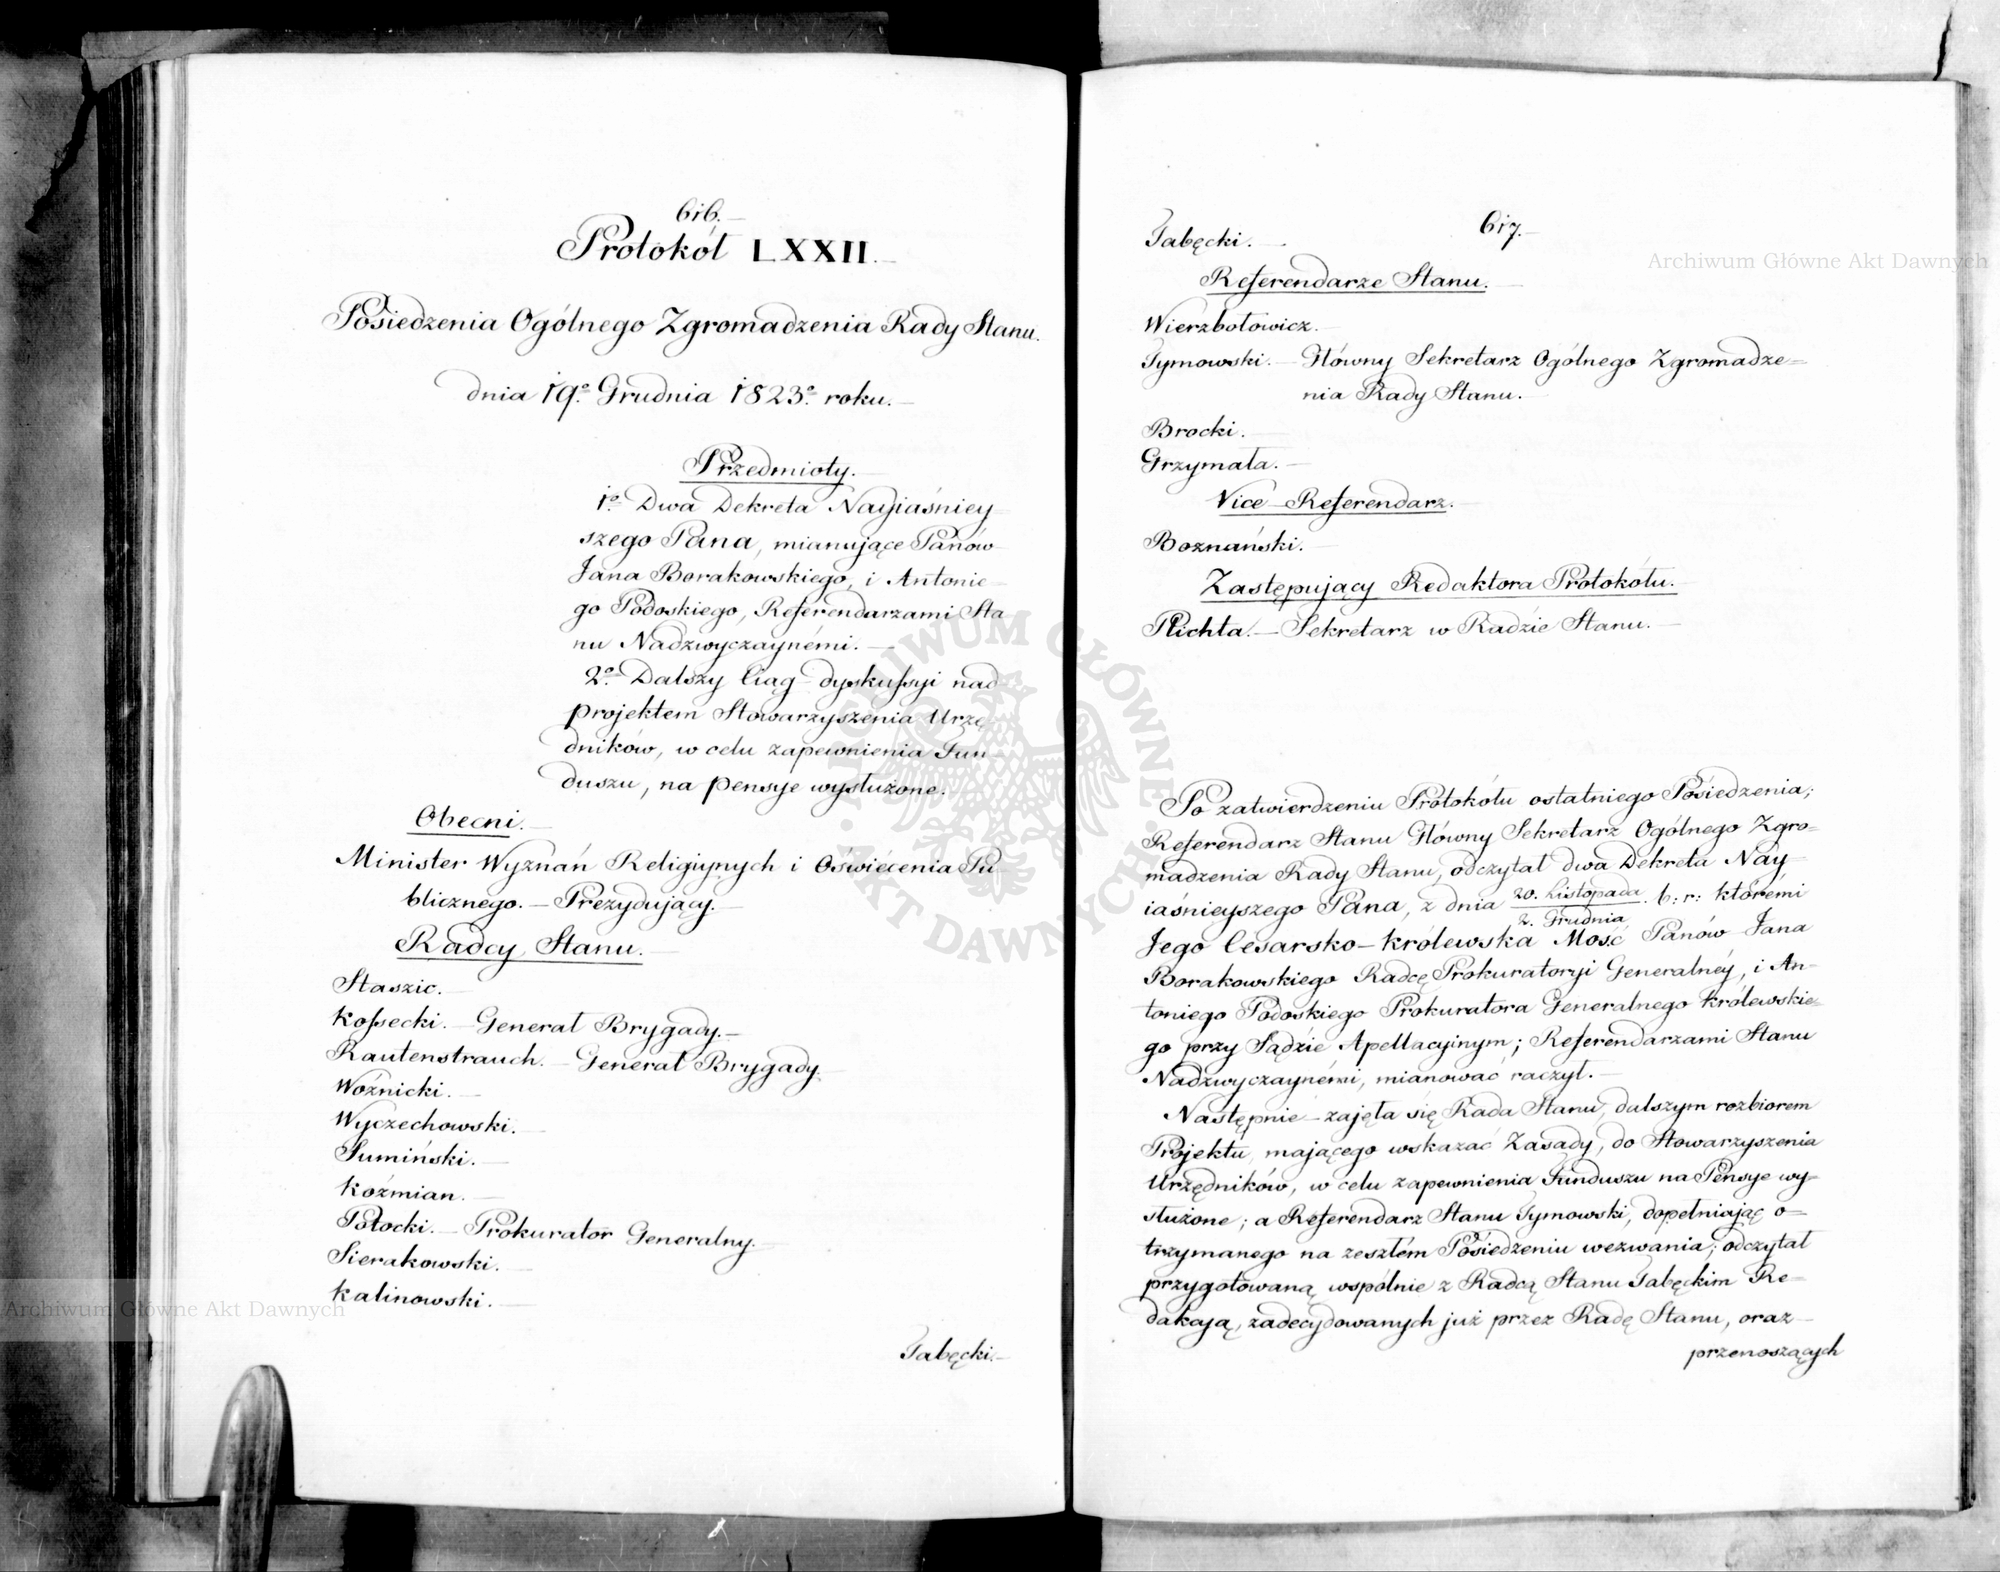 616.
Protokół LXXII.
Posiedzenia Ogólnego Zgromadzenia Rady Stanu.
dnia 19º Grudnia 1823º roku.
Przedmioty.
1º Dwa Dekreta Nayiaśniey
szego Pana, mianujące Panów
Jana Borakowskiego, i Antonie-
go Podoskiego, Referendarzami Sta
nu Nadzwyczaynémi.
2º Dalszy Ciąg dyskussyi nad
projektem Stowarzyszenia Urzę-
dników, w celu zapewnienia Fun-
duszu, na pensye wysłużone.
Obecni.
Minister Wyznań Religiynych i Oświécenia Pu-
blicznego. – Prezydujący.
Radcy Stanu.
Staszic.
Kossecki. – Generał Brygady.
Rautenstrauch. – Generał Brygady.
Woźnicki.
Wyczechowski.
Sumiński.
Koźmian.
Potocki. – Prokurator Generalny.
Sierakowski.
Kalinowski.
Tabęcki.
617.
Tabęcki.
Referendarze Stanu.
Wierzbołowicz.
Tymowski. – Główny Sekretarz Ogólnego Zgromadze=
nia Rady Stanu.
Brocki.
Grzymała.
Vice Referendarz.
Boznański.
Zastępujący Redaktora Protokółu.
Plichta. – Sekretarz w Radzie Stanu.
Po zatwierdzeniu Protokółu ostatniego Posiedzenia;
Referendarz Stanu Główny Sekretarz Ogólnego Zgro=
madzenia Rady Stanu, odczytał dwa Dekreta Nay-
iaśnieyszego Pana, z dnia 20. Listopada b: r: którémi
2. Grudnia
Jego Cesarsko-Królewska Mość Panów Jana
Borakowskiego Radcę Prokuratoryi Generalnéy, i An-
toniego Podoskiego Prokuratora Generalnego Królewskie-
go przy Sądzie Apellacyinym; Referendarzami Stanu
Nadzwyczaynémi, mianować raczył.
Następnie zajęła się Rada Stanu, dalszym rozbiorem
Projektu, mającego wskazać Zasady, do Stowarzyszenia
Urzędników, w celu zapewnienia Funduszu na Pensye wy-
służone; a Referendarz Stanu Tymowski, dopełniając o=
trzymanego na zeszłém Posiedzeniu wezwania; odczytał
przygotowaną wspólnie z Radcą Stanu Tabęckim Re=
dakcją, zadecydowanych już przez Radę Stanu, oraz
przenoszących
Archiwum Główne Akt Dawnych
Archiwum Główne Akt Dawnych
ARCHIWUM GŁÓWNE AKT DAWNYCH